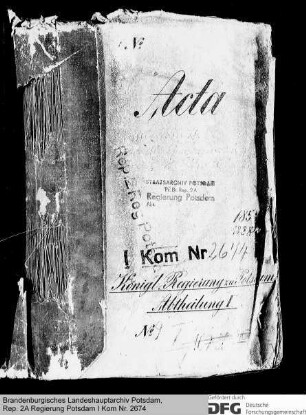 N°
Acta
STAATSARCHIV POTSDAM
Pr. Br. Rep. 2A
Regierung Potsdam
Rep. 2 Reg. Pots
I Kom Nr. 2674
Königl. Regierung zu Potsdam
Abtheilung I
N°
Brandenburgisches Landeshauptarchiv Potsdam,
Rep. 2A Regierung Potsdam I Kom Nr. 2674
Gefördert durch
DFG Deutsche
Forschungsgemeinschaft